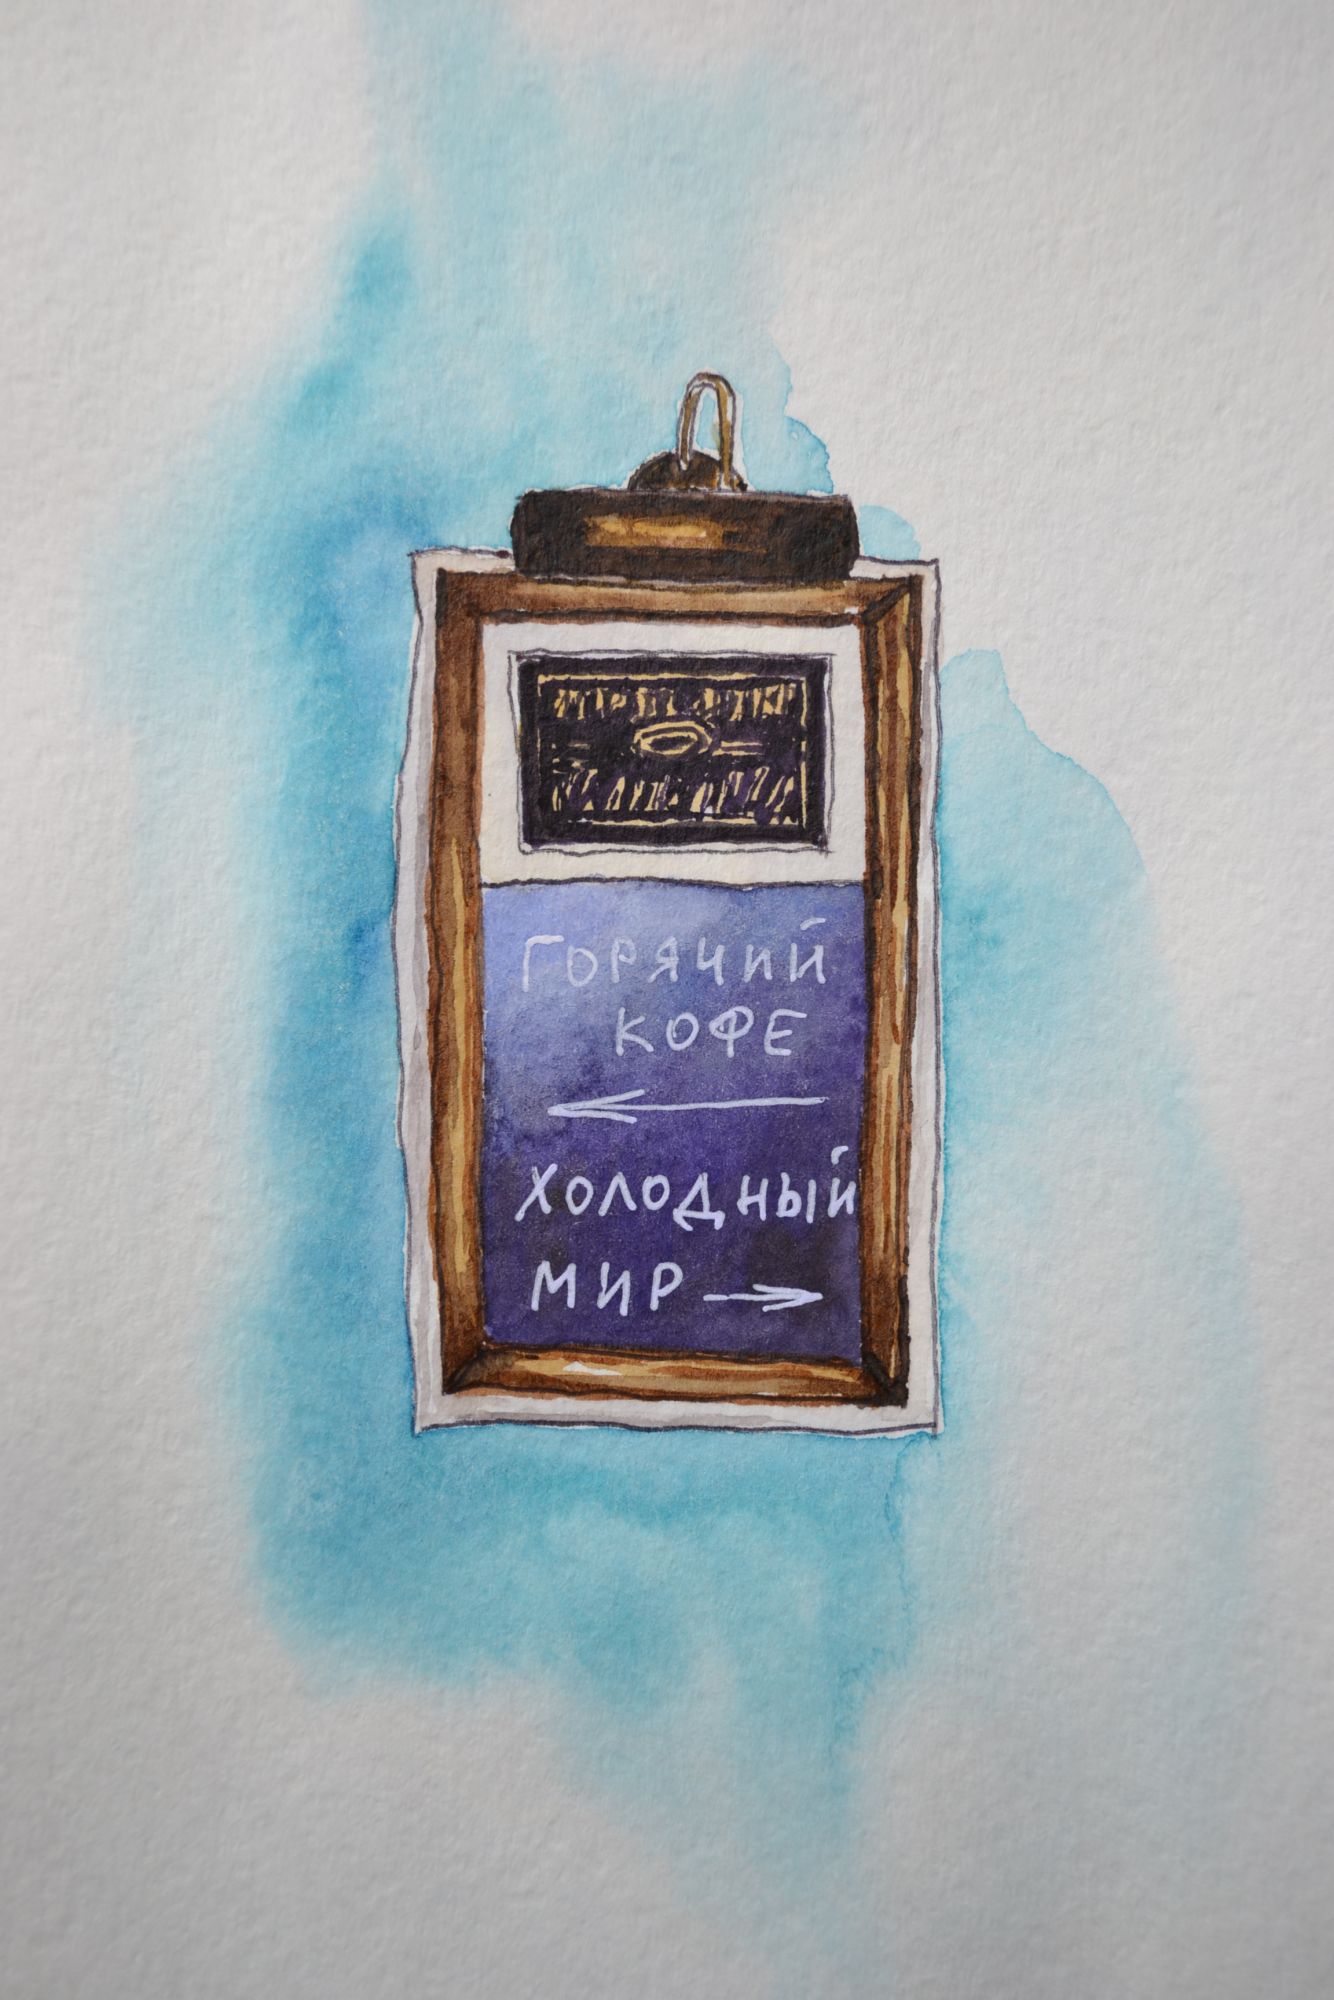 ГОРЯЧИЙ
КОФЕ
ХОЛОДНЫЙ
МИР